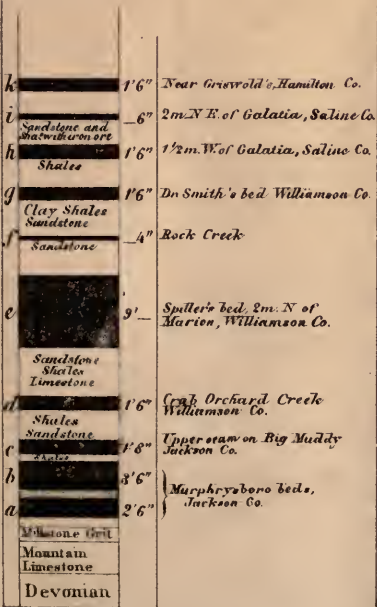 k 1'6" Near Griswold's, Hamilton Co.
i 6" 2m. N E. of Galatia, Saline Co.
Sandstone and
Shale with iron ore
h 1'6" 1½m. W. of Galatia, Saline Co.
Shales
g 1'6" Dr. Smith's bed Williamson Co.
Clay Shales
Sandstone
f 4" Rock Creek
Sandstone
e 9' Spiller's bed, 2m. N of
Marion, Williamson Co.
Sandstone
Shales
Limestone
d 1'6" Crab Orchard Creek
Williamson Co.
Shales
Sandstone
c 1'8" Upper seam on Big Muddy
Jackson Co.
Shales
b 3'6"
Murphrysboro beds,
Jackson Co.
a 2'6"
Millstone Grit
Mountain
Limestone
Devonian